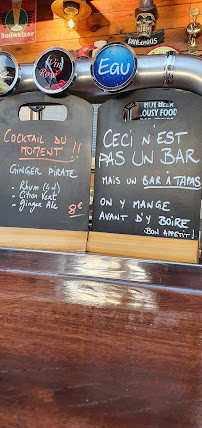 Budweiser
LOUSY
DANGEROUS
HOT BEER
LOUSY FOOD
Vin
Rosé
Eau
COCKTAIL DU
MOMENT !!
GINGER PIRATE
- Rhum (4cl)
- Citron Vert
- Ginger Ale
8€
CECI N'EST
PAS UN BAR
MAIS UN BAR À TAPAS
ON Y MANGE
AVANT D'Y BOIRE
BON APPETIT !